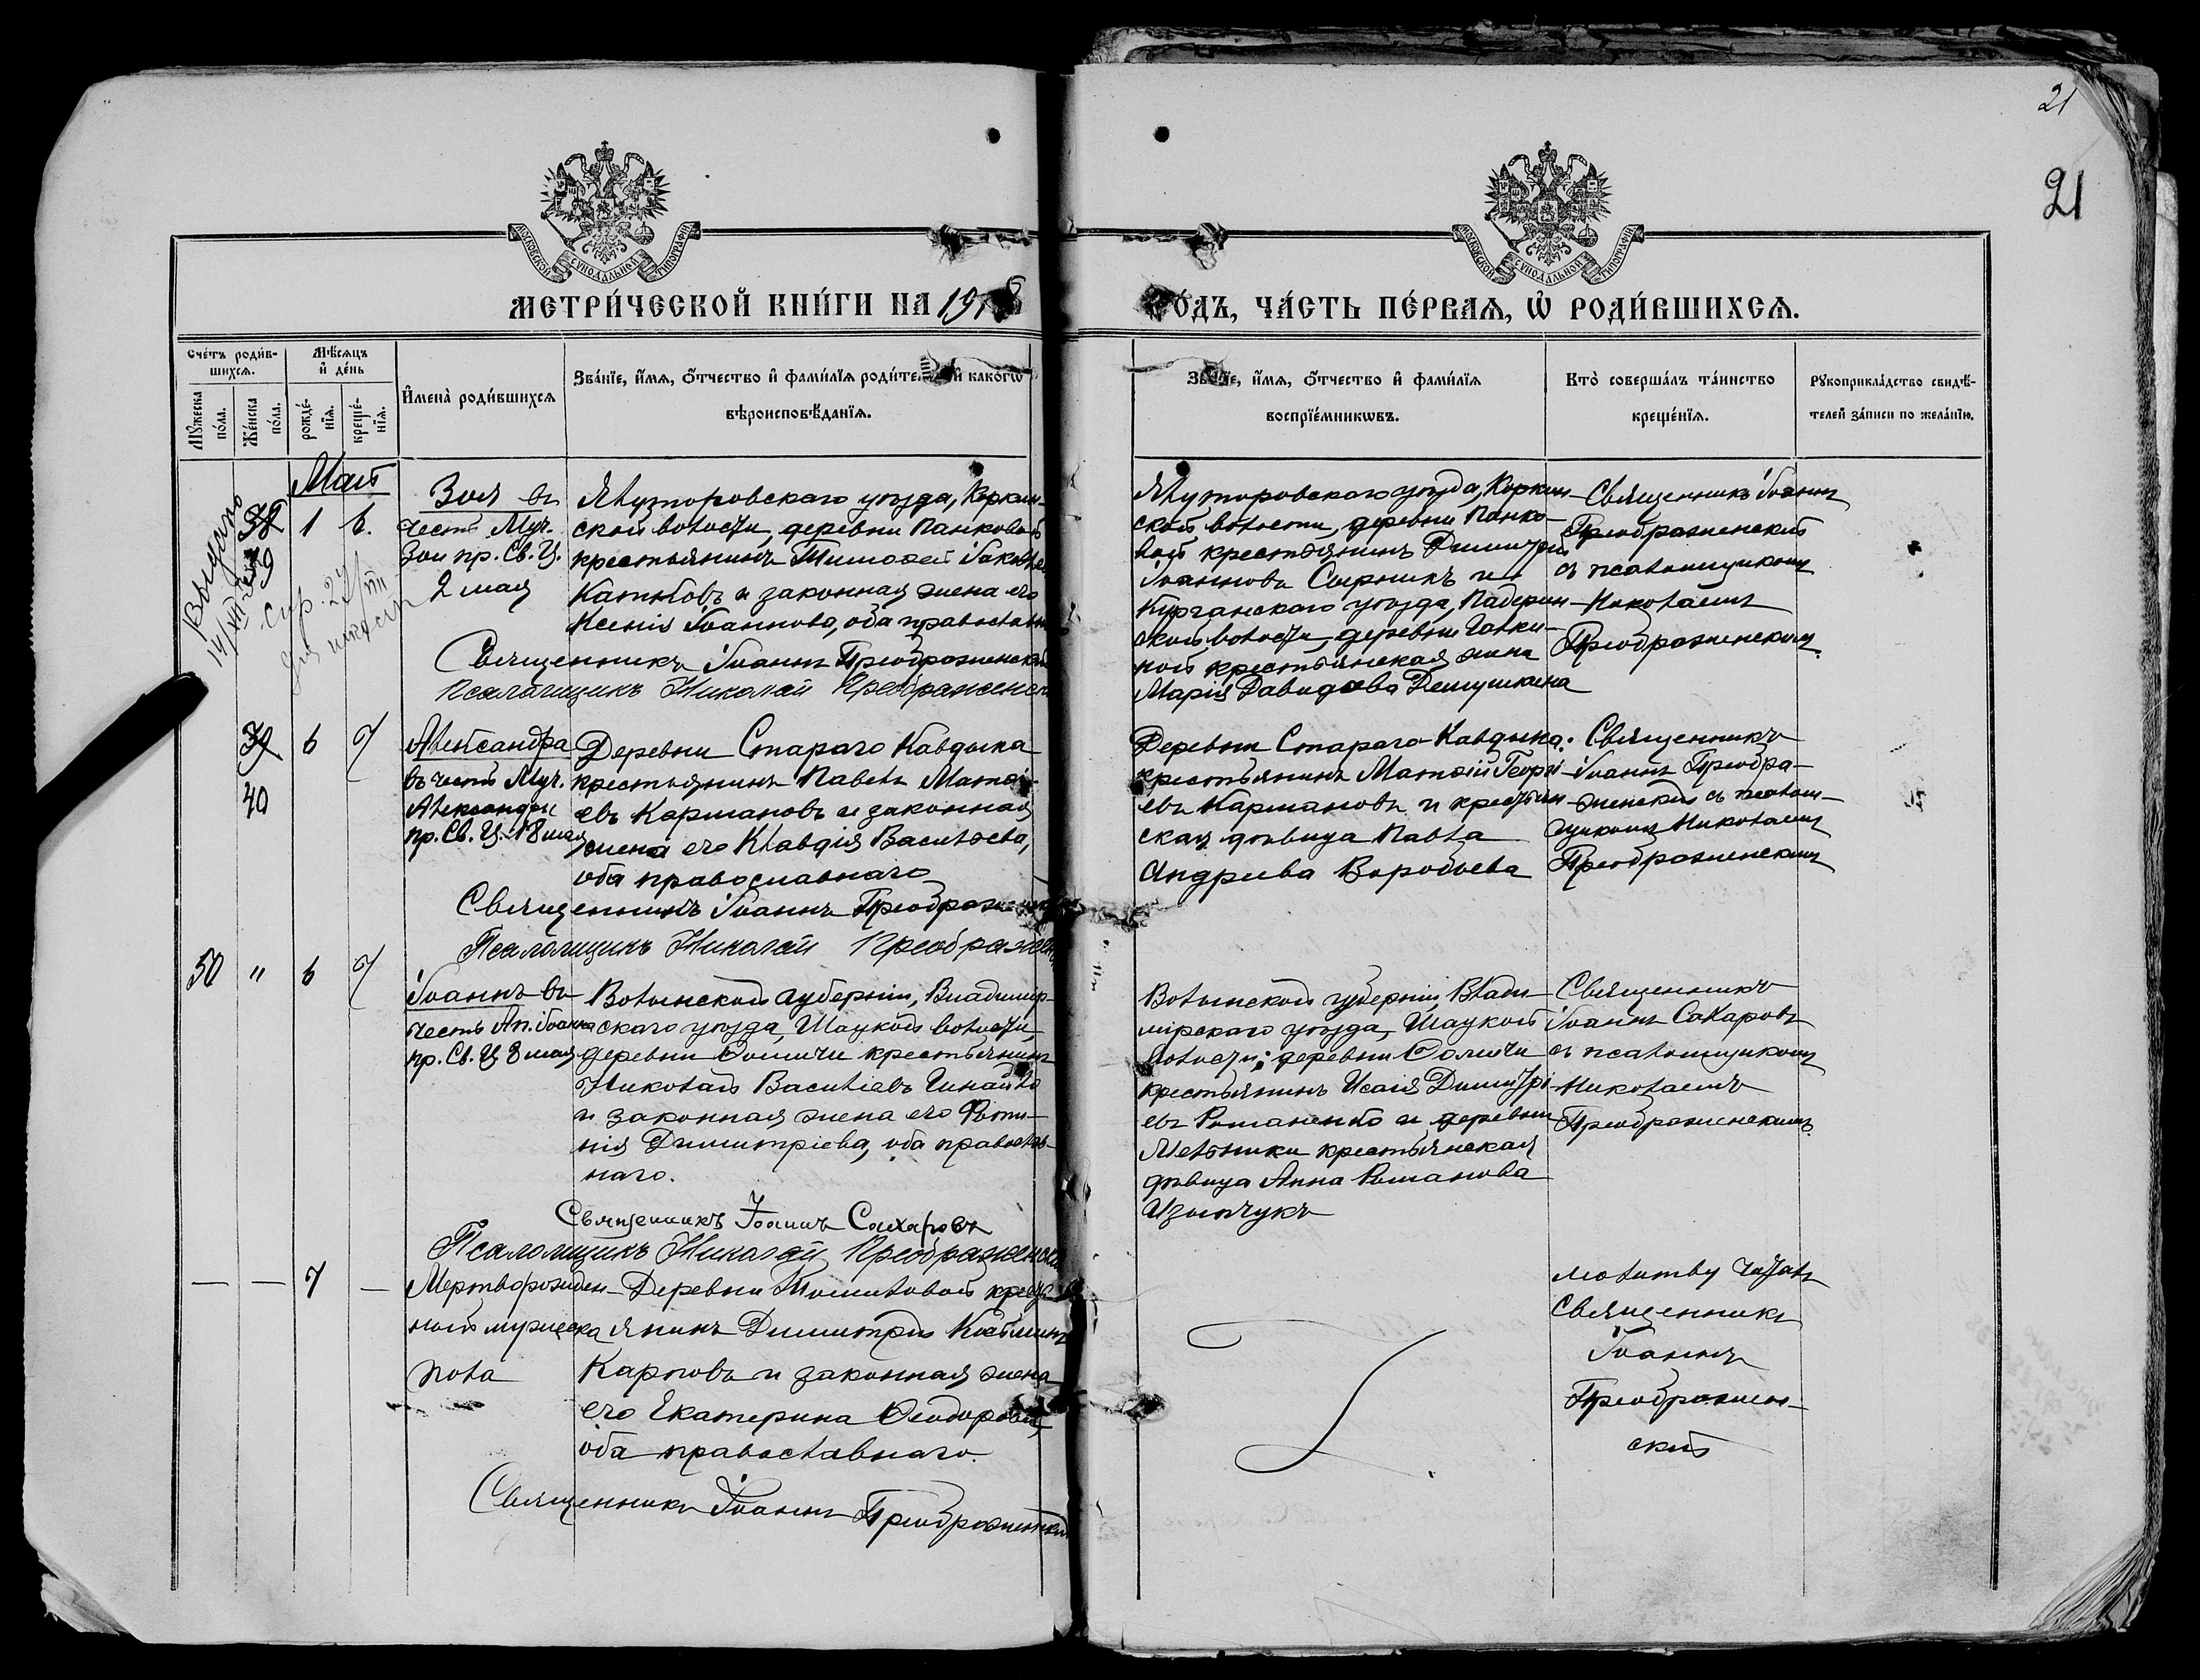 21
21
МОСКОВСКОЙ СѴНОДАЛЬНОЙ ТИПОГРАФІИ
МОСКОВСКОЙ СѴНОДАЛЬНОЙ ТИПОГРАФІИ
МЕТРИ́ЧЕСКОЙ КНИ́ГИ НА 1918
ГО́ДЪ, ЧА́СТЬ ПЕ́РВАЯ, Ѡ҆ РОДИ́ВШИХСЯ.
Сче́тъ роди́в-
шихся.
Мѣ́сяцъ
и҆ де́нь
Мꙋ́жеска
по́ла.
Же́нска
по́ла.
рожде́-
нїя.
креще́-
нїя.
И҆мена̀ роди́вшихся
Зва́нїе, и҆́мя, ѻ҆́тчество и҆ фами́лїя роди́телей и҆ како́гѡ
вѣроисповѣ́данїя.
Зва́нїе, и҆́мя, ѻ҆́тчество и҆ фами́лїя
воспрїе́мникѡвъ.
Кто̀ соверша́лъ та́инство
креще́нїя.
Рꙋкоприкла́дство свидѣ́-
телей за́писи по жела́нїю.
Май
Выдано
38
39
1
6.
Зоя въ
честь Муч.
Зои пр. Св. Ц.
2 мая
Ялуторовскаго уѣзда, Коркин-
ской волости, деревни Панковой
крестьянинъ Тимофей Іаковлев
Катковъ и законная жена его
Ксенія Іоаннова, оба православн
Священникъ Іоаннъ Преображенскій
Псаломщикъ Николай Преображенск
Ялуторовскаго уѣзда, Коркин-
ской волости, деревни Панко-
вой крестьянинъ Димитрій
Іоанновъ Сырникъ и
Курганскаго уѣзда, Падерин-
ской волости, деревни Галки-
ной крестьянская жена
Марія Давидова Демушкина
Священникъ Іоаннъ
Преображенскій
съ псаломщикомъ
Николаемъ
Преображенскимъ.
39
40
6
7
Александра
въ честь Муч.
Александры
пр. Св. Ц. 18 мая
Деревни Стараго Кавдыка
крестьянинъ Павелъ Матѳі-
евъ Кармановъ и законная
жена его Клавдія Васильева,
оба православнаго
Священникъ Іоаннъ Преображенск
Псаломщикъ Николай Преображен
Деревни Стараго Кавдыка.
крестьянинъ Матѳій Георгі-
евъ Кармановъ и крестьян-
ская дѣвица Павла
Андреева Воробьева
Священникъ
Іоаннъ Преобра-
женскій съ псалом-
щикомъ Николаемъ
Преображенскимъ
50
"
6
7
Іоаннъ въ
честь Ап. Іоанна
пр. Св. Ц. 8 мая
Волынской губерніи, Владимир-
скаго уѣзда, Шацкой волости,
деревни Сомичи крестьянинъ
Николай Васильевъ
и законная жена его Фоти-
нія Димитріева, оба православ-
наго.
Священникъ Іоаннъ Сахаровъ
Псаломщикъ Николай Преображенск
Волынской губерніи, Влади-
мірскаго уѣзда, Шацкой
волости, деревни
крестьянинъ Исаія Димитрі-
евъ Романенко и деревни
Мельники крестьянская
дѣвица Анна Романова
Священникъ
Іоаннъ Сахаровъ
съ псаломщикомъ
Николаемъ
Преображенскимъ.
— — 7 —
Мертворожден-
ный мужеска
пола
Деревни Томиловой крест
янинъ Димитрій
Карповъ и законная жена
его Екатерина Ѳеодорова,
оба православнаго.
Священникъ Іоаннъ Преображенскій
молитву читалъ
Священникъ
Іоаннъ
Преображен-
скій